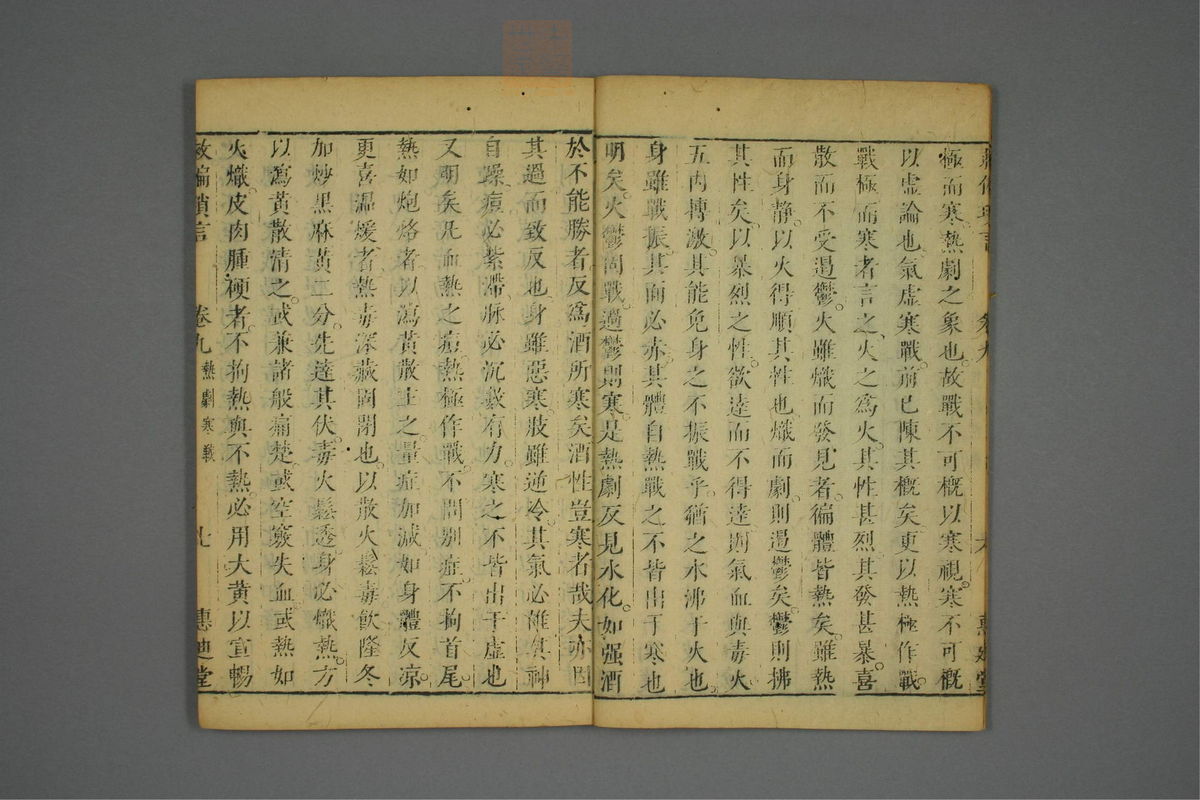 極而寒熱劇之象也故戰不可槪以寒視寒不可槪
以虛論也氣虛寒戰前已陳其槪矣更以熱極作戰
戰極而寒者言之火之爲火其性甚烈其發甚暴喜
散而不受遏鬱火雖熾而發見者徧體皆熱矣雖熱
而身靜以火得順其性也熾而劇則遏鬱矣鬱則拂
其性矣以暴烈之性欲逹而不得逹則氣血與毒火
五內搏激其能免身之不振戰乎猶之水沸于火也
身雖戰振其面必赤其體自熱戰之不皆出于寒也
明矣火鬱而戰遏鬱則寒是熱劇反見水化如强酒
於不能勝者反爲酒所寒矣酒性豈寒者哉夫亦因
其過而致反也身雖惡寒肢雖逆冷其氣必雄其神
自躁痘必紫滯脉必沉數有力寒之不皆出于虛也
又明矣凡血熱之痘熱極作戰不問别症不拘首尾
熱如炮烙者以瀉黃散主之量症加減如身體反凉
更喜温煖者熱毒深藏固閉也以散火鬆毒飮隆冬
加炒黑麻黃二分先逹其伏毒火鬆透身必熾熱方
以瀉黃散淸之或兼諸般痛楚或空竅失血或熱如
火熾皮肉腫硬者不拘熱與不熱必用大黃以宣暢
救偏瑣言 卷九 熱劇寒戰 七 惠廸堂